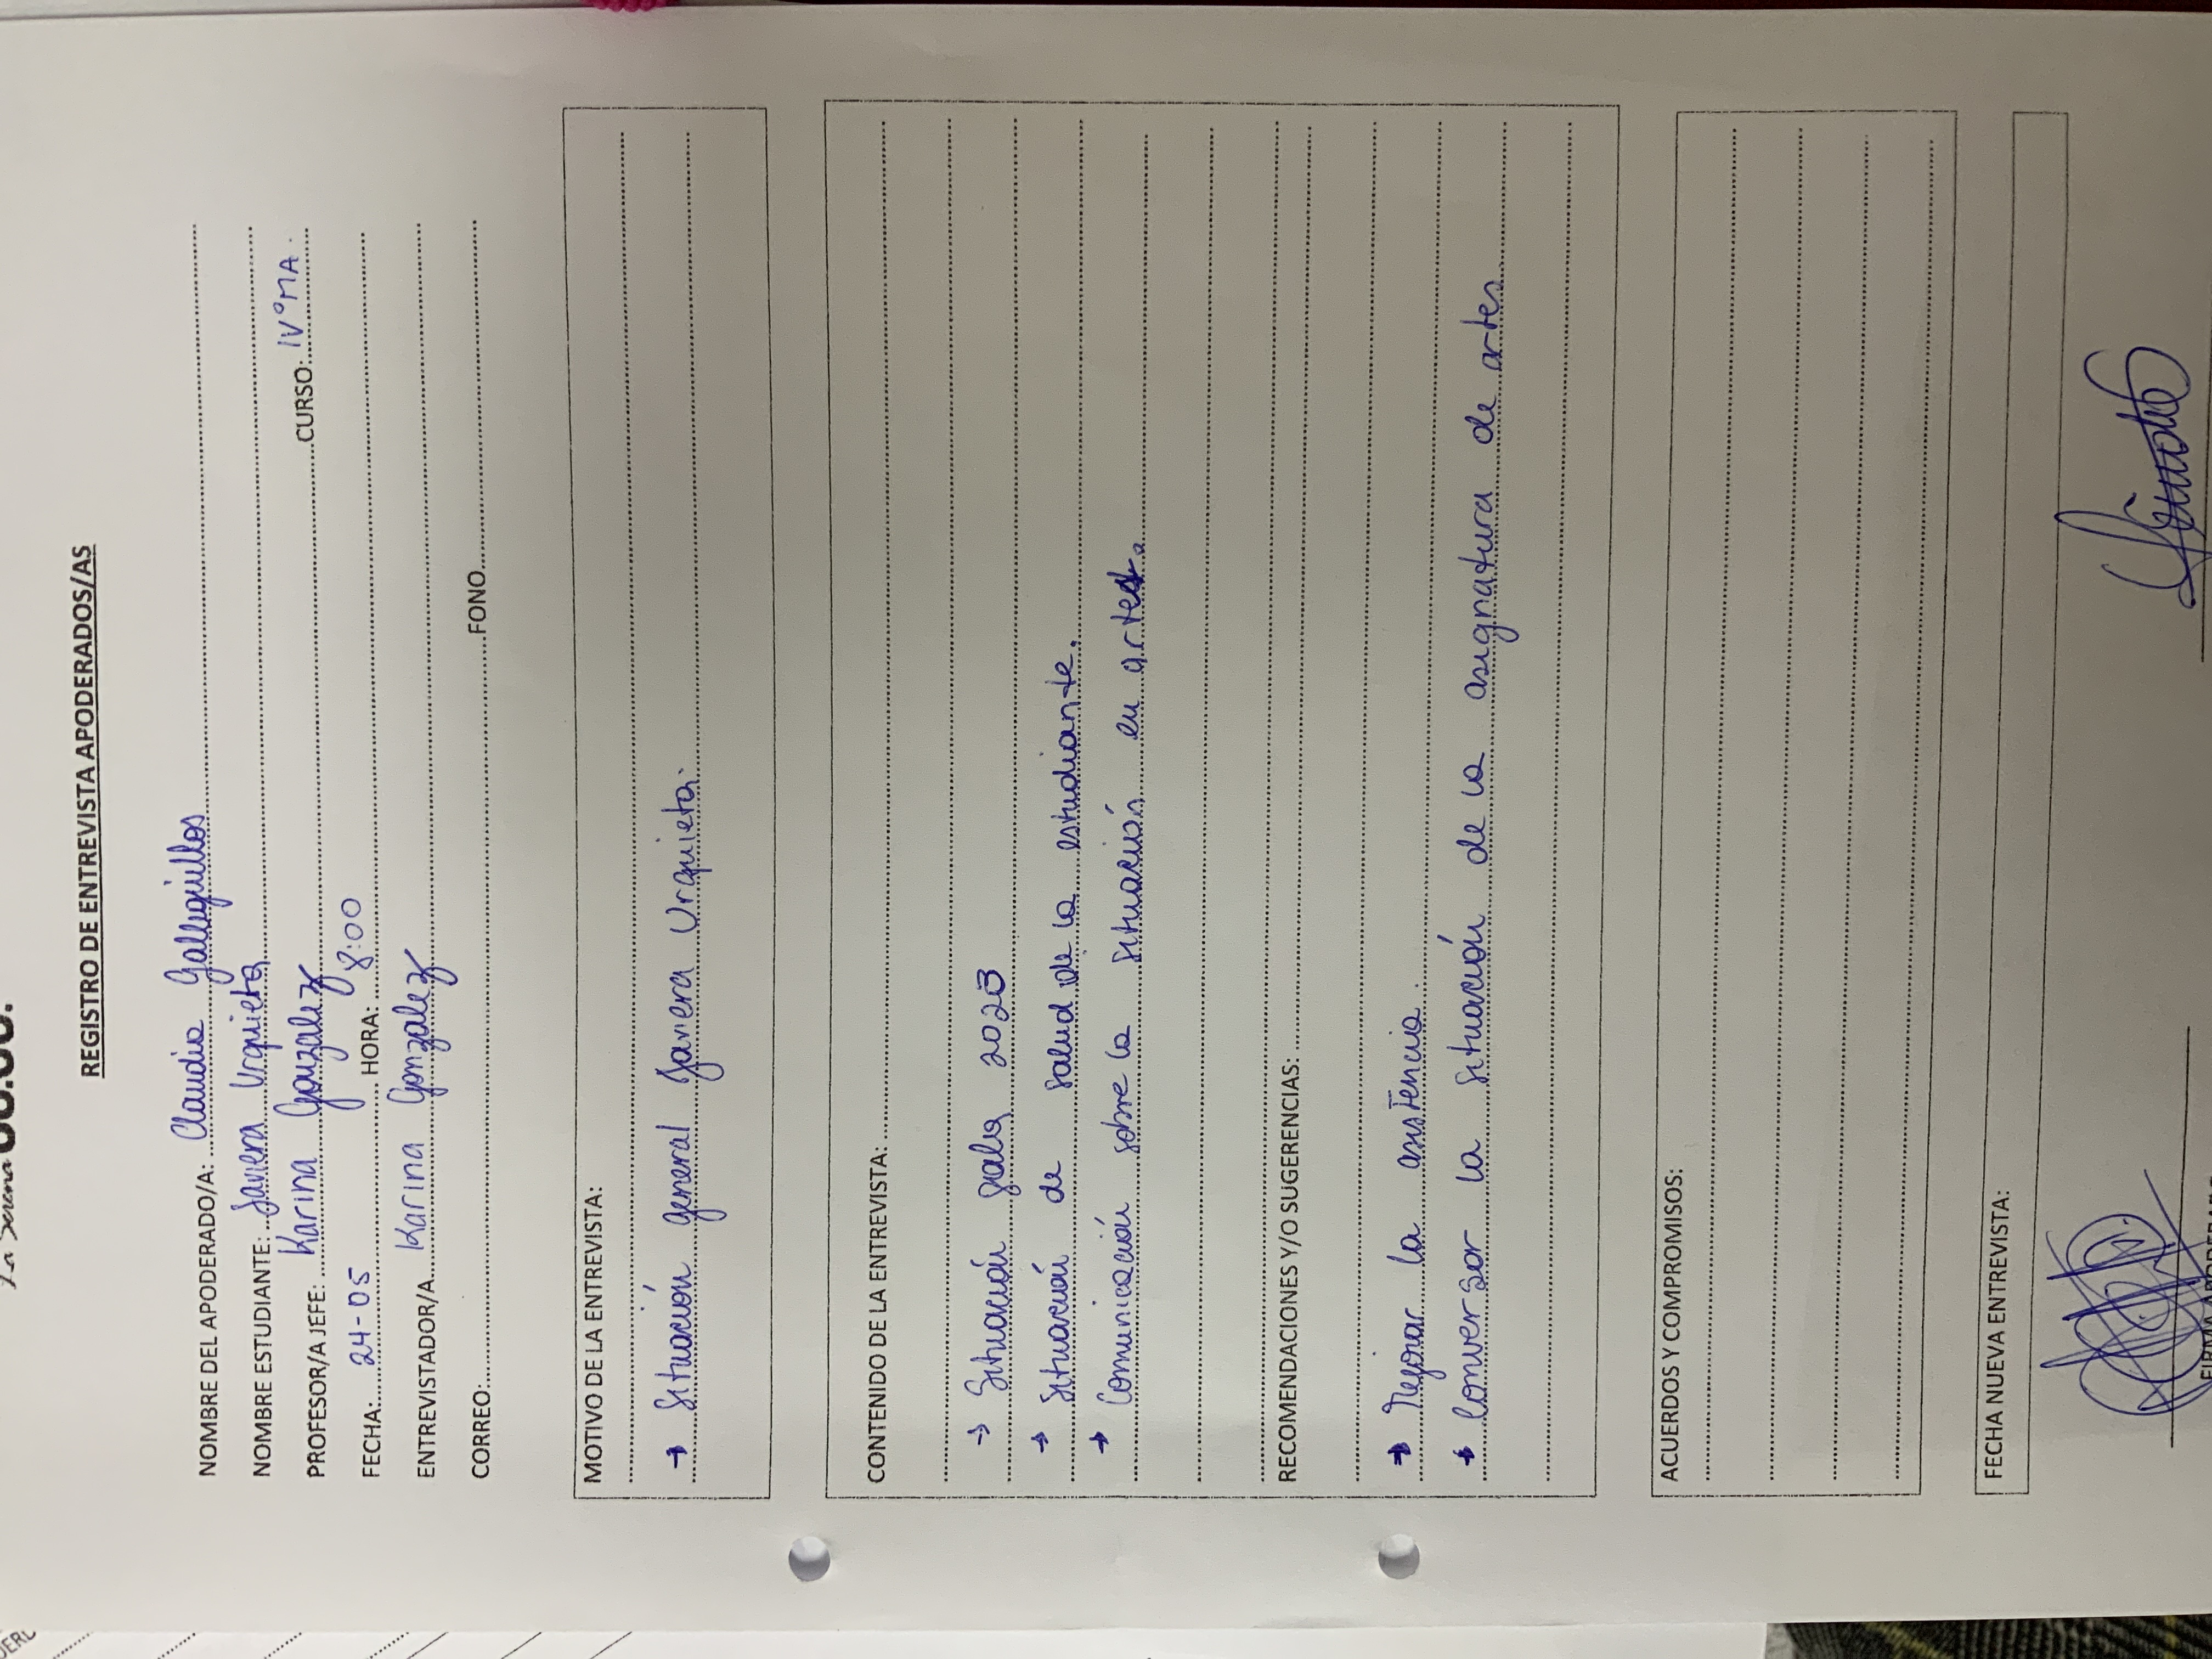 La Serena
REGISTRO DE ENTREVISTA APODERADOS/AS
NOMBRE DEL APODERADO/A: Claudia Galleguillos
NOMBRE ESTUDIANTE: Javiera Urquieta
PROFESOR/A JEFE: Karina Gonzalez CURSO: IV°MA.
FECHA: 24-05 HORA: 8:00
ENTREVISTADOR/A Karina Gonzalez
CORREO: FONO
MOTIVO DE LA ENTREVISTA:
→ Situación general Javiera Urquieta.
CONTENIDO DE LA ENTREVISTA:
→ Situación gala 2023
→ Situación de salud de la estudiante.
→ Comunicación sobre la situación en artes.
RECOMENDACIONES Y/O SUGERENCIAS:
→ Mejorar la asistencia.
→ Conversar la situación de la asignatura de artes
ACUERDOS Y COMPROMISOS:
FECHA NUEVA ENTREVISTA: